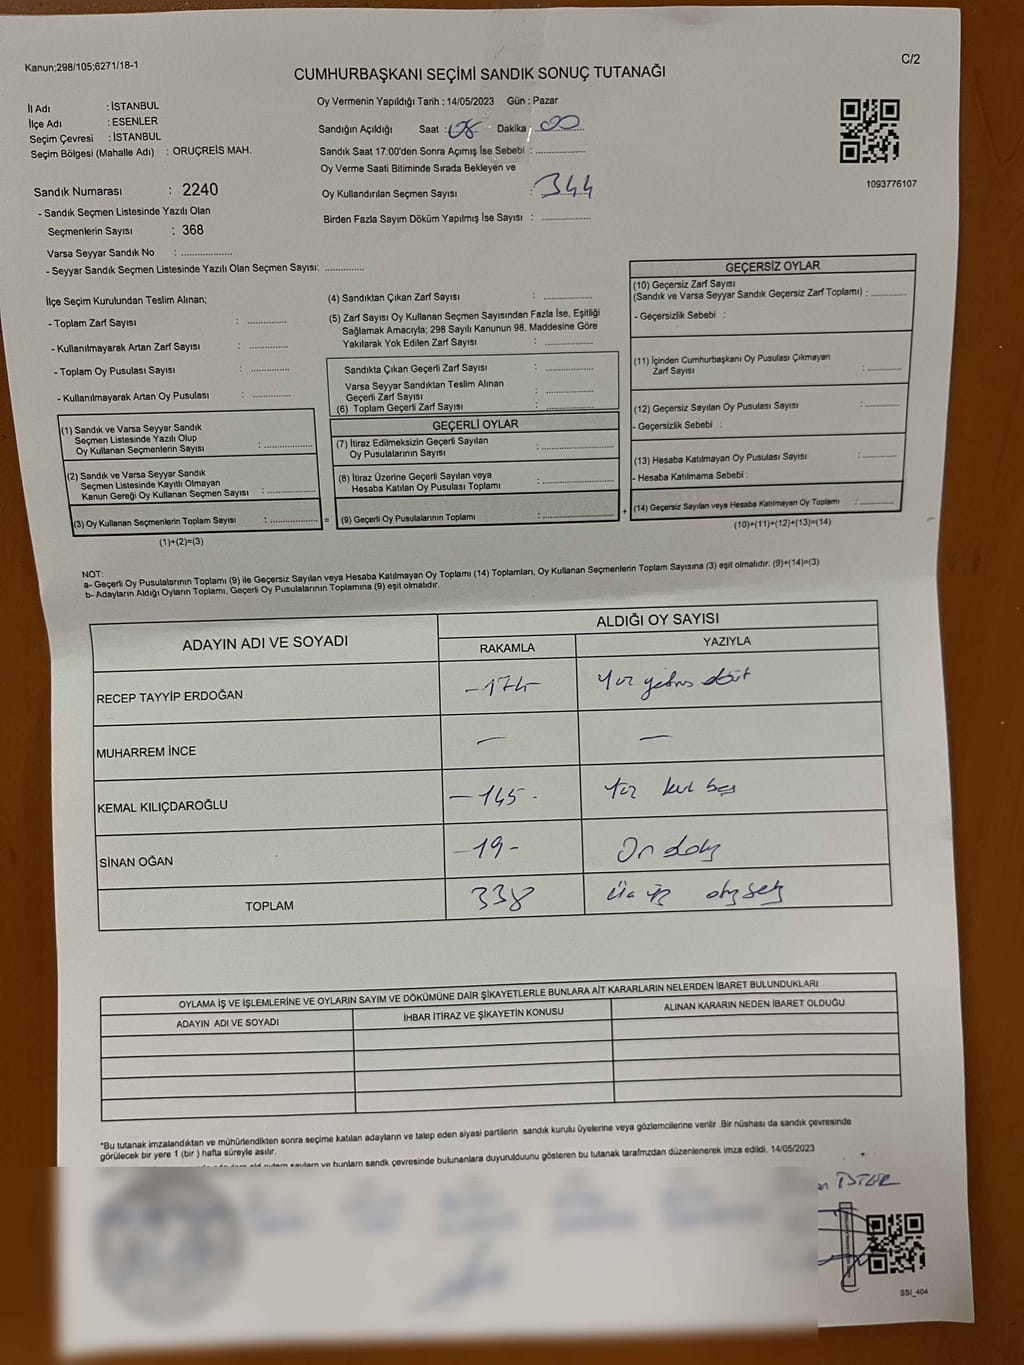 Kanun;298/105;6271/18-1
C/2
CUMHURBAŞKANI SEÇİMİ SANDIK SONUÇ TUTANAĞI
İl Adı : İSTANBUL
İlçe Adı : ESENLER
Seçim Çevresi : İSTANBUL
Seçim Bölgesi (Mahalle Adı) : ORUÇREİS MAH.
Sandık Numarası : 2240
- Sandık Seçmen Listesinde Yazılı Olan
Seçmenlerin Sayısı : 368
Varsa Seyyar Sandık No : ....................
- Seyyar Sandık Seçmen Listesinde Yazılı Olan Seçmen Sayısı: ...............
Oy Vermenin Yapıldığı Tarih : 14/05/2023 Gün : Pazar
Sandığın Açıldığı Saat : 08 Dakika : 00
Sandık Saat 17:00'den Sonra Açımış İse Sebebi : ...................
Oy Verme Saati Bitiminde Sırada Bekleyen ve
Oy Kullandırılan Seçmen Sayısı : 344
Birden Fazla Sayım Döküm Yapılmış İse Sayısı : ...................
1093776107
İlçe Seçim Kurulundan Teslim Alınan;
- Toplam Zarf Sayısı : ...............
- Kullanılmayarak Artan Zarf Sayısı : ...............
- Toplam Oy Pusulası Sayısı : ...............
- Kullanılmayarak Artan Oy Pusulası : ...............
(1) Sandık ve Varsa Seyyar Sandık
Seçmen Listesinde Yazılı Olup
Oy Kullanan Seçmenlerin Sayısı : ...............
(2) Sandık ve Varsa Seyyar Sandık
Seçmen Listesinde Kayıtlı Olmayan
Kanun Gereği Oy Kullanan Seçmen Sayısı : ...............
(3) Oy Kullanan Seçmenlerin Toplam Sayısı : ............... =
(1)+(2)=(3)
(4) Sandıktan Çıkan Zarf Sayısı : ...............
(5) Zarf Sayısı Oy Kullanan Seçmen Sayısından Fazla İse, Eşitliği
Sağlamak Amacıyla; 298 Sayılı Kanunun 98. Maddesine Göre
Yakılarak Yok Edilen Zarf Sayısı : ...............
Sandıkta Çıkan Geçerli Zarf Sayısı : ...............
Varsa Seyyar Sandıktan Teslim Alınan
Geçerli Zarf Sayısı : ...............
(6) Toplam Geçerli Zarf Sayısı : ...............
GEÇERLİ OYLAR
(7) İtiraz Edilmeksizin Geçerli Sayılan
Oy Pusulalarının Sayısı : ...............
(8) İtiraz Üzerine Geçerli Sayılan veya
Hesaba Katılan Oy Pusulası Toplamı : ...............
(9) Geçerli Oy Pusulalarının Toplamı : ............... +
GEÇERSİZ OYLAR
(10) Geçersiz Zarf Sayısı
(Sandık ve Varsa Seyyar Sandık Geçersiz Zarf Toplamı) : ...............
- Geçersizlik Sebebi :
(11) İçinden Cumhurbaşkanı Oy Pusulası Çıkmayan
Zarf Sayısı : ...............
(12) Geçersiz Sayılan Oy Pusulası Sayısı : ...............
- Geçersizlik Sebebi :
(13) Hesaba Katılmayan Oy Pusulası Sayısı : ...............
- Hesaba Katılmama Sebebi :
(14) Geçersiz Sayılan veya Hesaba Katılmayan Oy Toplamı : ...............
(10)+(11)+(12)+(13)=(14)
NOT:
a- Geçerli Oy Pusulalarının Toplamı (9) ile Geçersiz Sayılan veya Hesaba Katılmayan Oy Toplamı (14) Toplamları, Oy Kullanan Seçmenlerin Toplam Sayısına (3) eşit olmalıdır. (9)+(14)=(3)
b- Adayların Aldığı Oyların Toplamı, Geçerli Oy Pusulalarının Toplamına (9) eşit olmalıdır.
ADAYIN ADI VE SOYADI ALDIĞI OY SAYISI
RAKAMLA YAZIYLA
RECEP TAYYİP ERDOĞAN -174- Yüz yetmiş dört
MUHARREM İNCE - -
KEMAL KILIÇDAROĞLU -145- Yüz kırk beş
SİNAN OĞAN -19- On dokuz
TOPLAM 338 Üç yüz otuz sekiz
OYLAMA İŞ VE İŞLEMLERİNE VE OYLARIN SAYIM VE DÖKÜMÜNE DAİR ŞİKAYETLERLE BUNLARA AİT KARARLARIN NELERDEN İBARET BULUNDUKLARI
ADAYIN ADI VE SOYADI İHBAR İTİRAZ VE ŞİKAYETİN KONUSU ALINAN KARARIN NEDEN İBARET OLDUĞU
*Bu tutanak imzalandıktan ve mühürlendikten sonra seçime katılan adayların ve talep eden siyasi partilerin sandık kurulu üyelerine veya gözlemcilerine verilir .Bir nüshası da sandık çevresinde
görülecek bir yere 1 (bir ) hafta süreyle asılır.
ve bunların sandk çevresinde bulunanlara duyurulduunu gösteren bu tutanak tarafmzdan düzenlenerek imza edildi. 14/05/2023
SSI_404